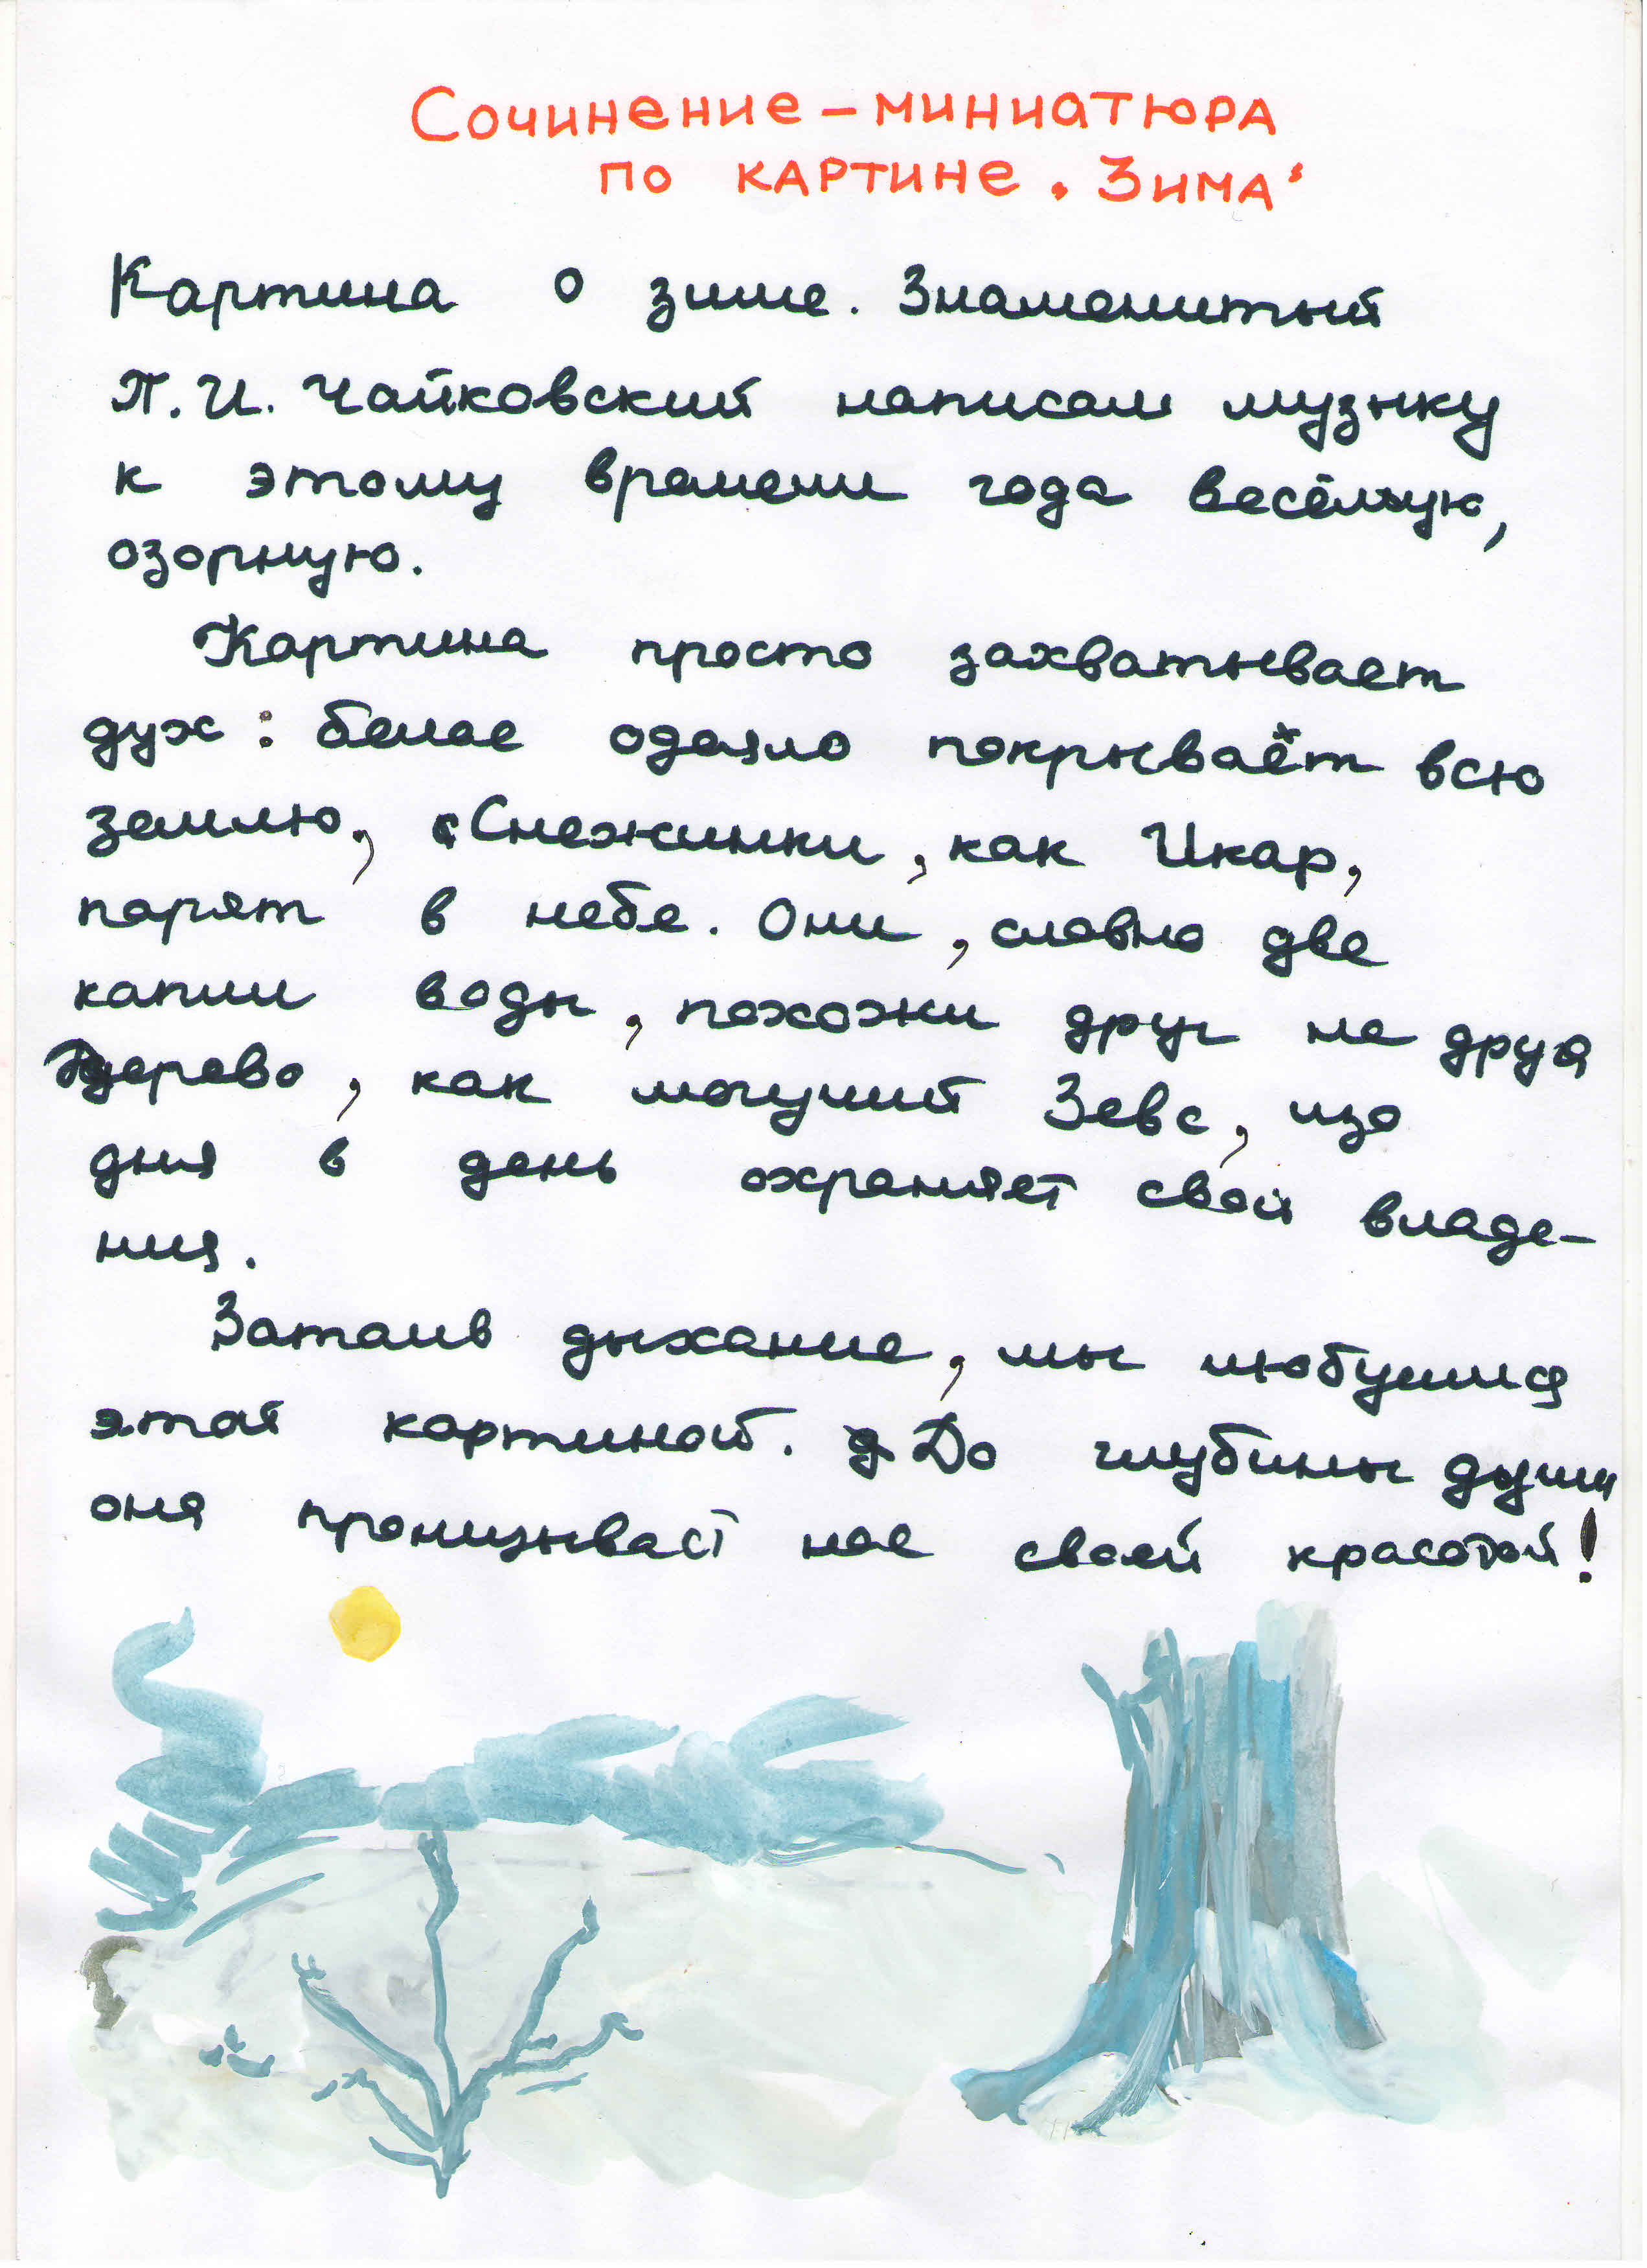 Сочинение - миниатюра
по картине "Зима"
Картина о зиме. Знаменитый
П.И. Чайковский написал музыку
к этому времени года весёлую,
озорную.
Картина просто захватывает
дух: белое одеяло покрывает всю
землю, Снежинки, как Икар,
парят в небе. Они, словно две
капли воды, похожи друг на друга
Дерево, как могучий Зевс, изо
дня в день охраняет свои владе-
ния.
Затаив дыхание, мы любуемся
этой картиной. До глубины души
она пронизывает нас своей красотой!